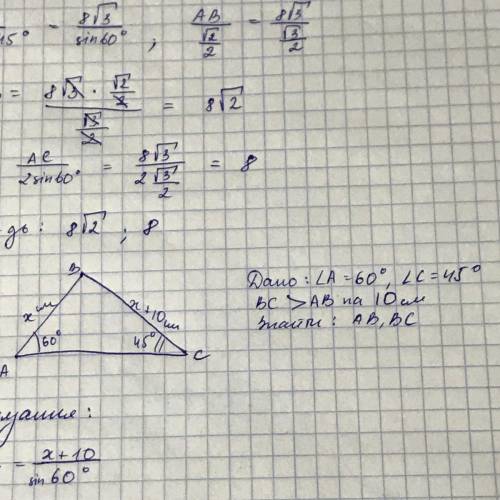 45° = 8√3 / sin60° ; AB / (√2/2) = 8√3 / (√3/2)
= (8√3 · √2/2) / (√3/2) = 8√2
AC / 2sin60° = 8√3 / (2 √3/2) = 8
дь: 8√2 ; 8
B
x см
x+10 см
60°
45°
A
C
Дано: ∠A = 60°, ∠C = 45°
BC > AB на 10 см
Знайти: AB, BC
= x+10 / sin 60°